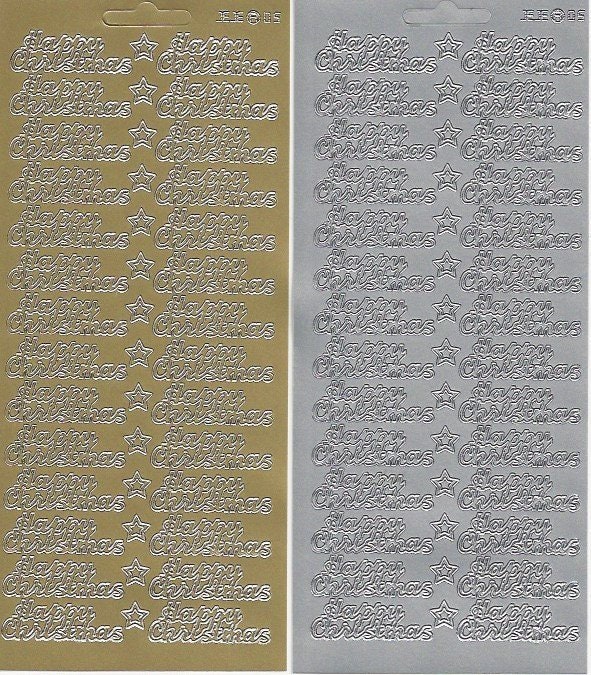 Happy Happy Happy Happy
Christmas Christmas Christmas Christmas
Happy Happy Happy Happy
Christmas Christmas Christmas Christmas
Happy Happy Happy Happy
Christmas Christmas Christmas Christmas
Happy Happy Happy Happy
Christmas Christmas Christmas Christmas
Happy Happy Happy Happy
Christmas Christmas Christmas Christmas
Happy Happy Happy Happy
Christmas Christmas Christmas Christmas
Happy Happy Happy Happy
Christmas Christmas Christmas Christmas
Happy Happy Happy Happy
Christmas Christmas Christmas Christmas
Happy Happy Happy Happy
Christmas Christmas Christmas Christmas
Happy Happy Happy Happy
Christmas Christmas Christmas Christmas
Happy Happy Happy Happy
Christmas Christmas Christmas Christmas
Happy Happy Happy Happy
Christmas Christmas Christmas Christmas
Happy Happy Happy Happy
Christmas Christmas Christmas Christmas
Happy Happy Happy Happy
Christmas Christmas Christmas Christmas